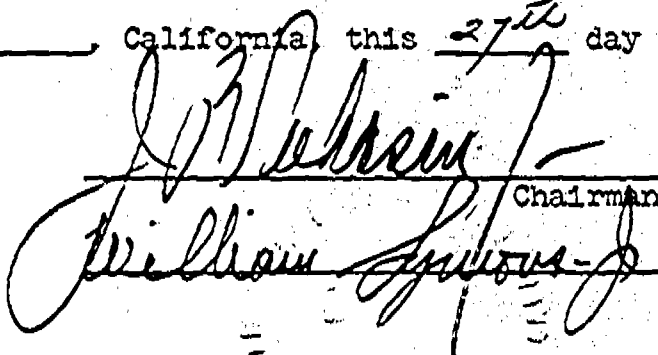 , California, this 27th day
Chairman
William Symons - J